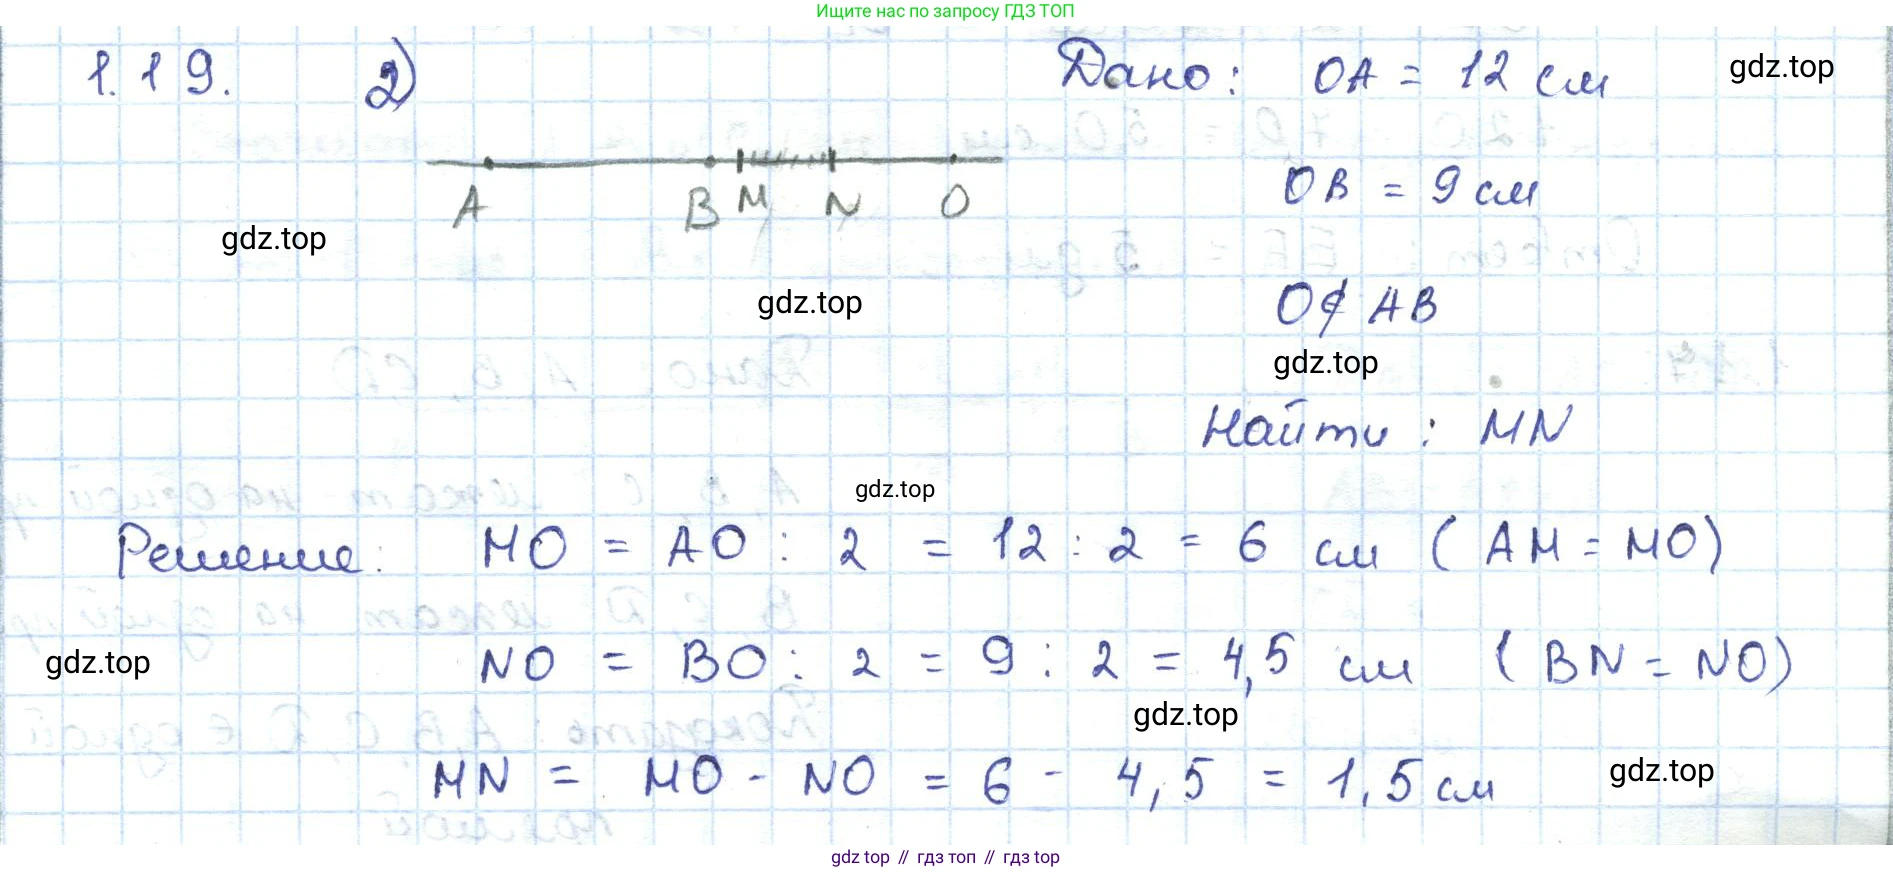 Ищите нас по запросу ГДЗ ТОП
1.19. 2) Дано: OA = 12 см
gdz.top
A B M N O
OB = 9 см
gdz.top
gdz.top
O∉ AB
gdz.top
Найти: MN
gdz.top
Решение: MO = AO : 2 = 12 : 2 = 6 см (AM = MO)
gdz.top
NO = BO : 2 = 9 : 2 = 4,5 см (BN = NO)
gdz.top
MN = MO - NO = 6 - 4,5 = 1,5 см
gdz.top
gdz top // гдз топ // гдз top